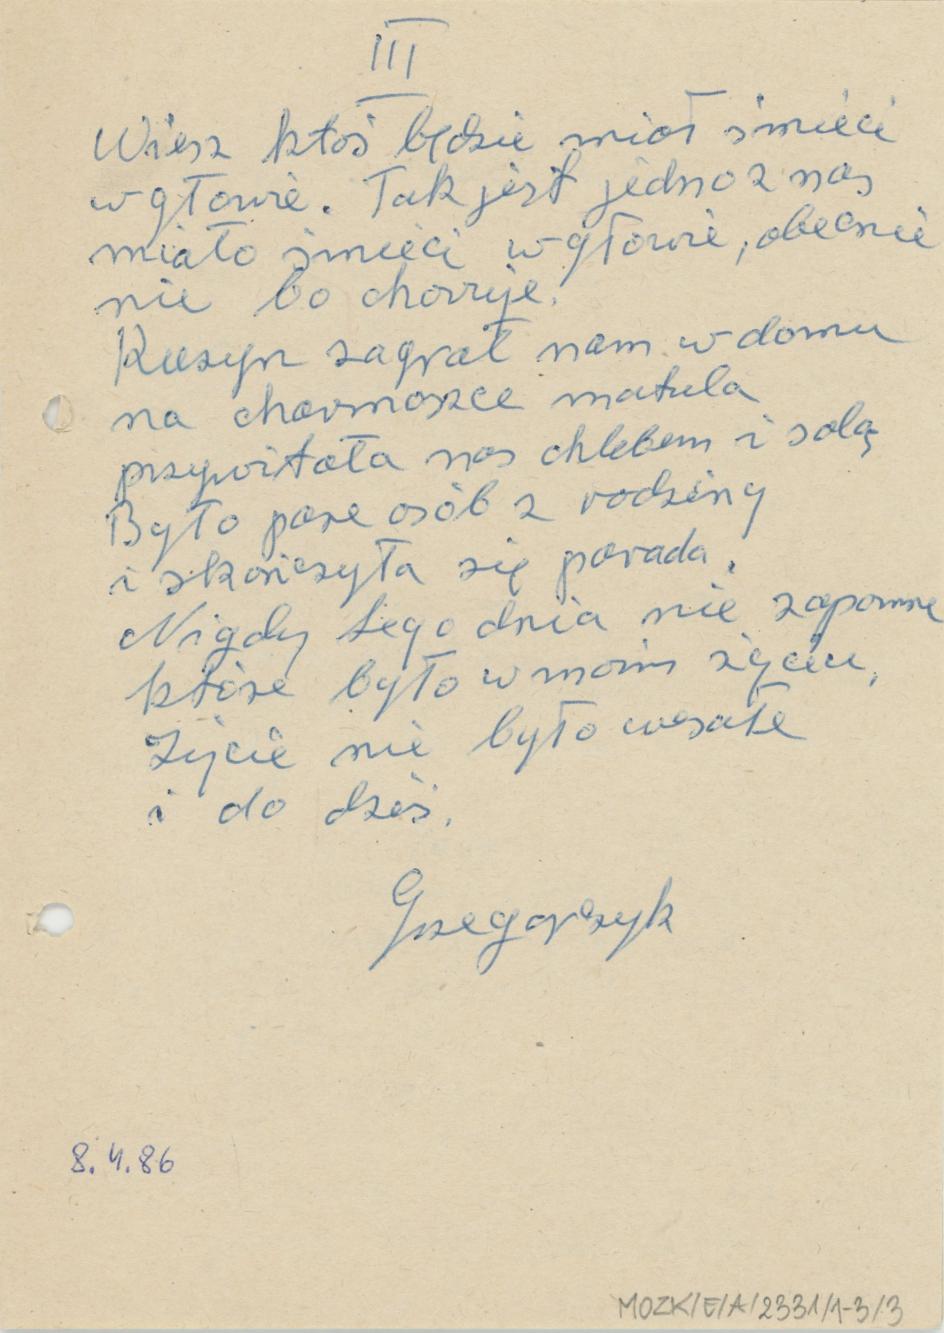 III
Wiesz ktoś będzie miał śmieci
w głowie. Tak jest jedno z nas
miało śmieci w głowie, obecnie
nie bo choruje.
Kuzyn zagrał nam w domu
na charmoszce matula
przywitała nas chlebem i solą
Było pare osób z rodziny
i skończyła się parada.
Nigdy tego dnia nie zapomne
które było w moim życiu,
Życie nie było wesałe
i do dziś.
Grzegorczyk
8.4.86
MOZK/E/A/2331/1-3/3